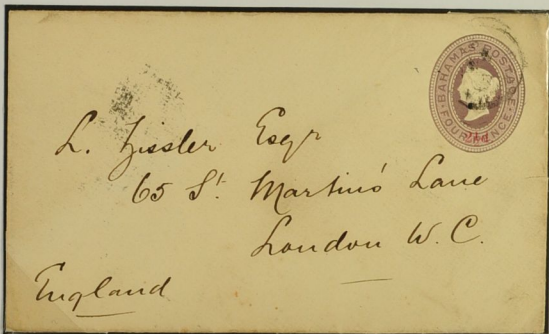 BAHAMAS POSTAGE
FOUR PENCE
2½d
L. Zissler Esqr
65 St. Martin's Lane
London W. C.
England